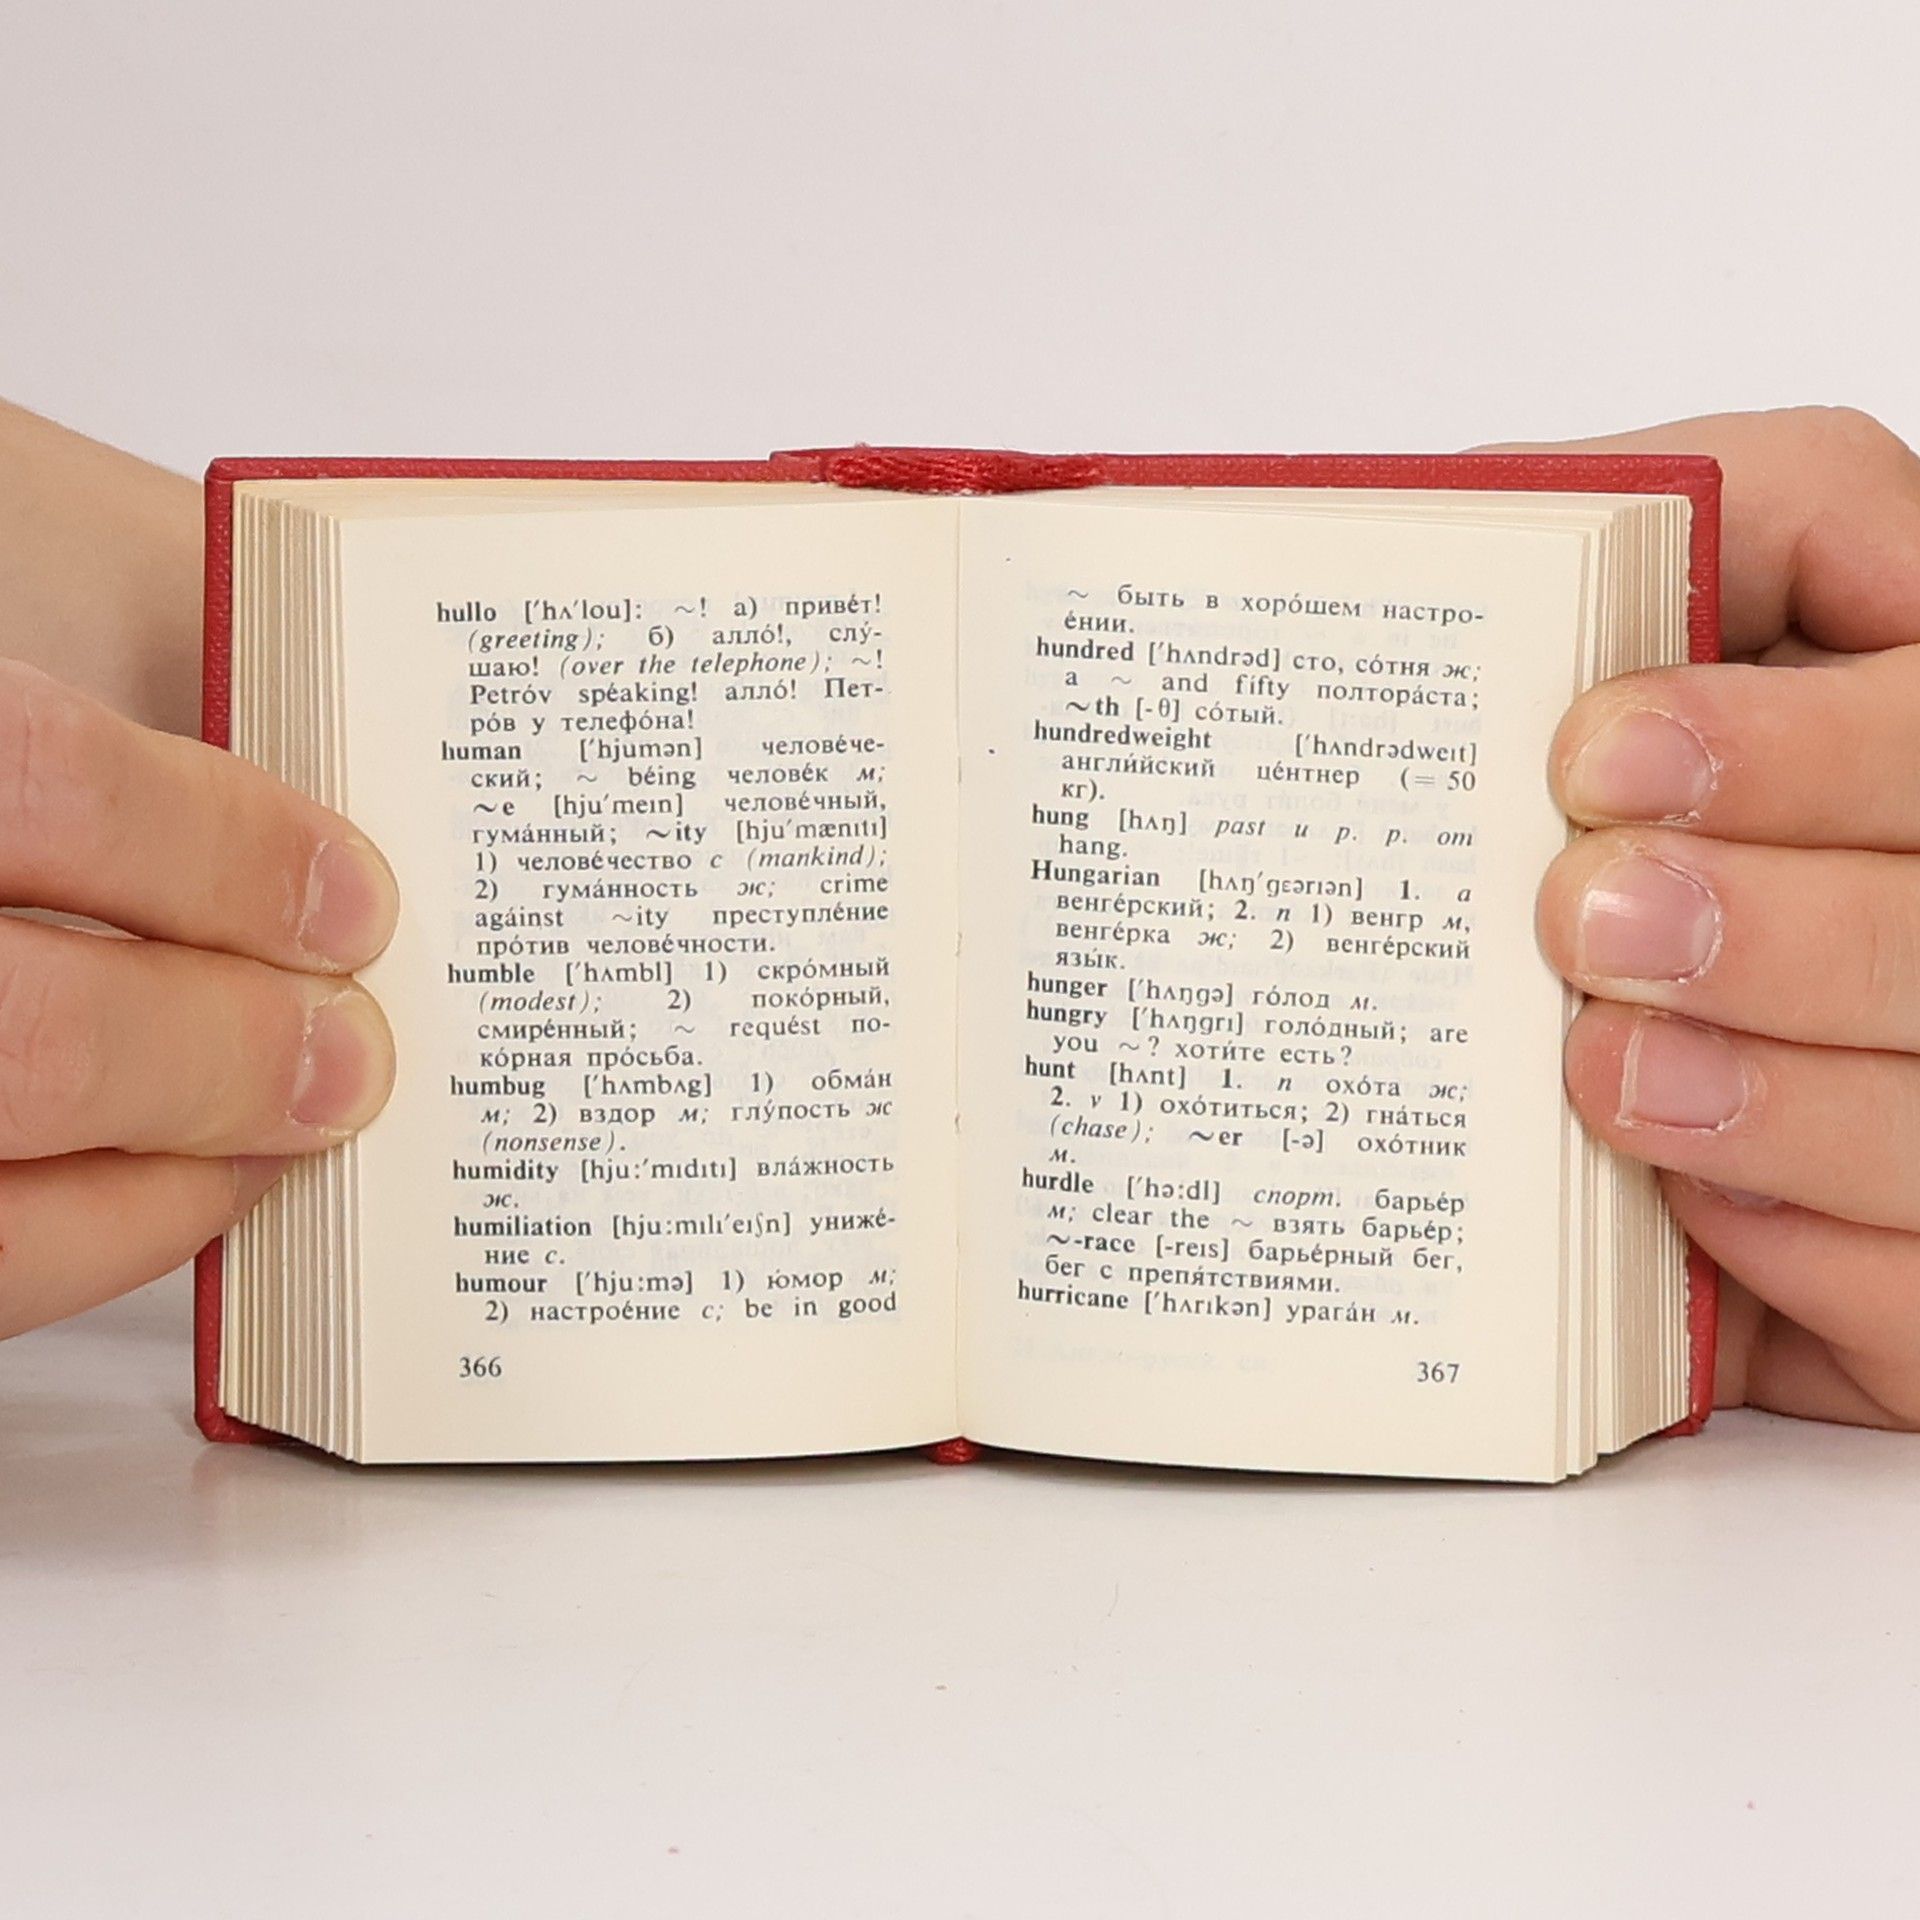 hullo [ˈhʌˈlou]: ~! а) приве́т!
(greeting); б) алло́!, слу́-
шаю! (over the telephone); ~!
Petróv spéaking! алло́! Пет-
ро́в у телефо́на!
human [ˈhjumən] челове́че-
ский; ~ béing челове́к м;
~e [hjuˈmeɪn] челове́чный,
гума́нный; ~ity [hjuˈmænɪtɪ]
1) челове́чество с (mankind);
2) гума́нность ж; crime
agáinst ~ity преступле́ние
про́тив челове́чности.
humble [ˈhʌmbl] 1) скро́мный
(modest); 2) поко́рный,
смире́нный; ~ requést по-
ко́рная про́сьба.
humbug [ˈhʌmbʌg] 1) обма́н
м; 2) вздор м; глу́пость ж
(nonsense).
humidity [hju:ˈmɪdɪtɪ] вла́жность
ж.
humiliation [hju:mɪlɪˈeɪʃn] униже́-
ние с.
humour [ˈhju:mə] 1) ю́мор м;
2) настрое́ние с; be in good
366
~ быть в хоро́шем настро-
е́нии.
hundred [ˈhʌndrəd] сто, со́тня ж;
a ~ and fífty полтора́ста;
~th [-θ] со́тый.
hundredweight [ˈhʌndrədweɪt]
англи́йский це́нтнер (= 50
кг).
hung [hʌŋ] past и p. p. от
hang.
Hungarian [hʌŋˈgɛərɪən] 1. a
венге́рский; 2. n 1) венгр м,
венге́рка ж; 2) венге́рский
язы́к.
hunger [ˈhʌŋgə] го́лод м.
hungry [ˈhʌŋgrɪ] голо́дный; are
you ~? хоти́те есть?
hunt [hʌnt] 1. n охо́та ж;
2. v 1) охо́титься; 2) гна́ться
(chase); ~er [-ə] охо́тник
м.
hurdle [ˈhə:dl] спорт. барье́р
м; clear the ~ взять барье́р;
~-race [-reɪs] барье́рный бег,
бег с препя́тствиями.
hurricane [ˈhʌrɪkən] урага́н м.
367